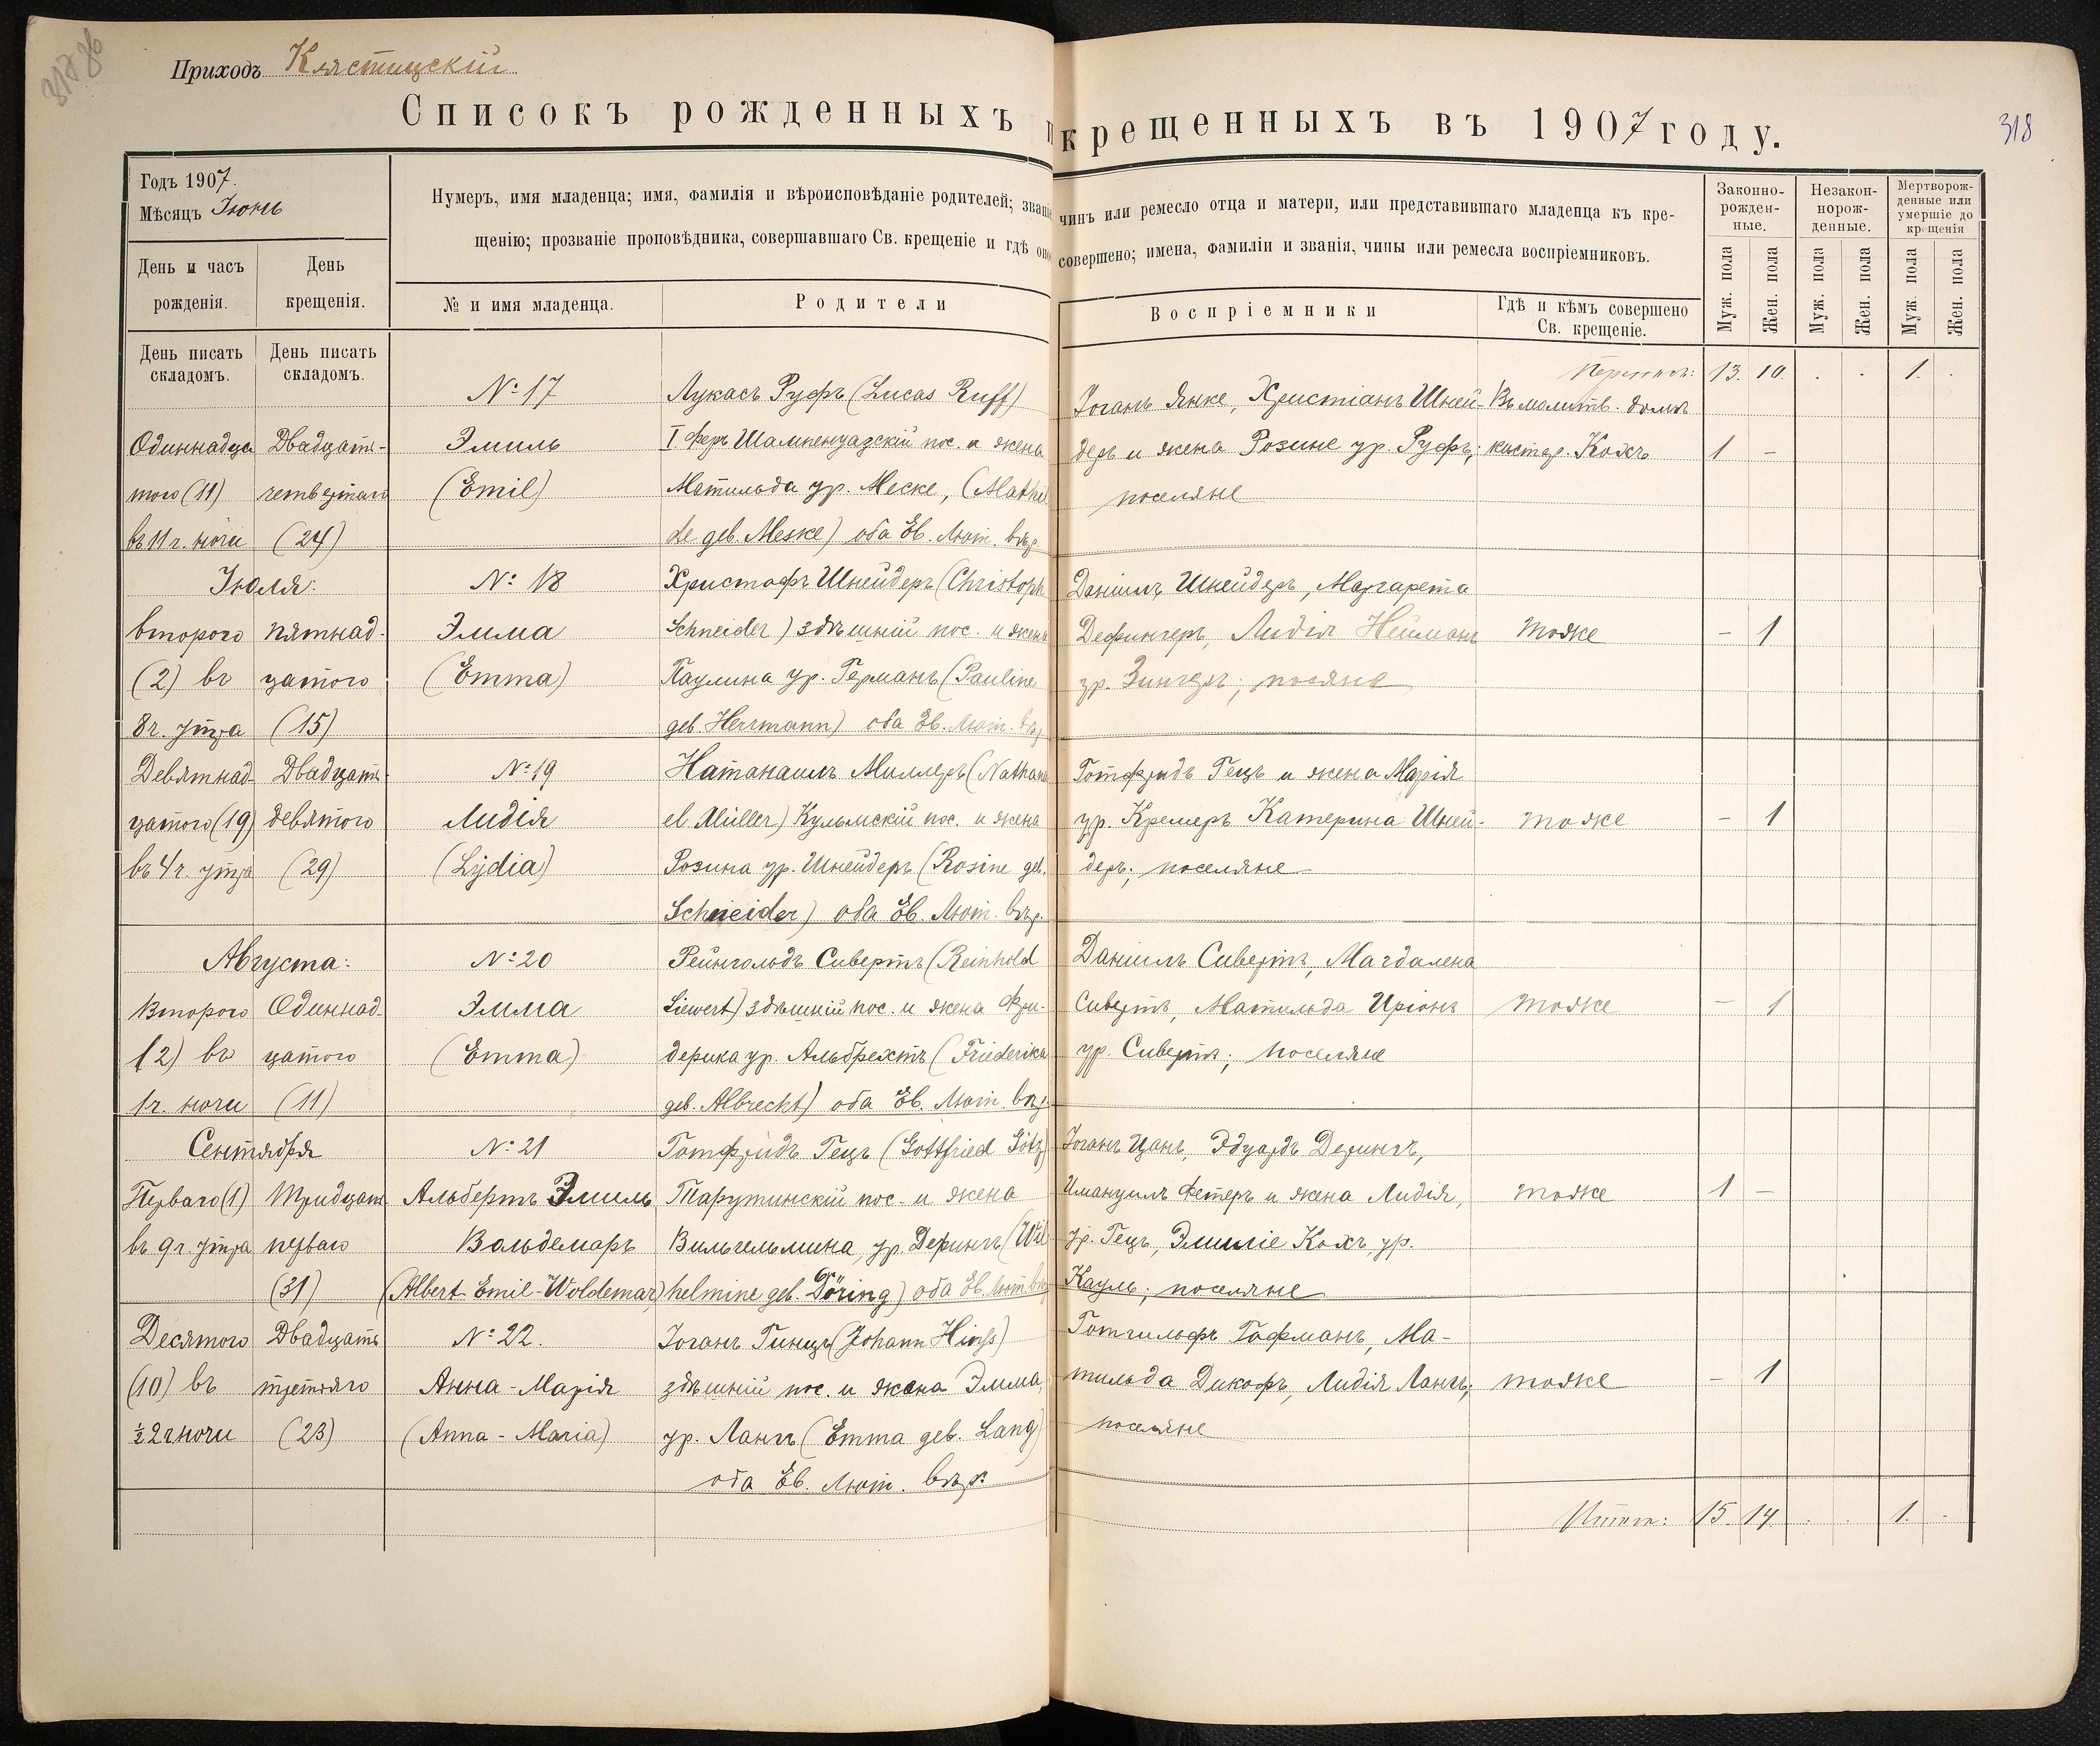 Приходъ Кястицскій
318
Списокъ рожденныхъ и крещенныхъ въ 1907 году.
Годъ 1907.
Мѣсяцъ Іюнь
Нумеръ, имя младенца; имя, фамилія и вѣроисповѣданіе родителей; званіе
чинъ или ремесло отца и матери, или представившаго младенца къ кре-
щенію; прозваніе проповѣдника, совершавшаго Св. крещеніе и гдѣ оно
совершено; имена, фамиліи и званія, чины или ремесла воспріемниковъ.
Законно-
рожден-
ные.
Незакон-
норож-
денные.
Мертворож-
денные или
умершіе до
крещенія
День и часъ
рожденія.
День
крещенія.
№ и имя младенца.
Родители
Воспріемники
Гдѣ и кѣмъ совершено
Св. крещеніе.
Муж. пола
Жен. пола
Муж. пола
Жен. пола
Муж. пола
Жен. пола
День писать
складомъ.
День писать
складомъ.
13. 10. . . 1. .
Одиннадца
таго (11)
въ 11 ч. ночи
Двадцать-
четвертаго
(24)
№ 17
Эмиль
(Emil)
Лукасъ Руфъ (Lucas Ruff)
I Ферь Шампенуазскій пос. и жена
Матильда ур. Меске, (Mathil
de geb. Meske) оба Ев. Лют. вѣр.
Іоганъ Янке, Христіанъ Шней-
деръ и жена Розине ур. Руфъ;
поселяне
Въ молитв. домѣ
кистер. Кохъ
1 –
Іюля:
второго
(2) въ
8 ч. утра
пятнад-
цатого
(15)
№ 18
Эмма
(Emma)
Христофъ Шнейдеръ (Christoph
Schneider) здѣшній пос. и жена
Паулина ур. Германъ (Pauline
geb. Herrmann) оба Ев. Лют. вѣр.
Даніилъ Шнейдеръ, Маргарета
Дефингеръ, Лидія Нейманъ
ур. Зингеръ; посяне
тоже
– 1
Девятнад
цатого (19)
въ 4 ч. утра
Двадцать
девятого
(29)
№ 19
Лидія
(Lydia)
Натанаилъ Миллеръ (Nathana
el Müller) Кульмскій пос. и жена
Розина ур. Шнейдеръ (Rosine geb.
Schneider) оба Ев. Лют. вѣр.
Готфридъ Гецъ и жена Марія
ур. Кремеръ Катерина Шней-
деръ; поселяне
тоже
– 1
Августа:
Второго
(2) въ
1 ч. ночи
Одиннад-
цатого
(11)
№ 20
Эмма
(Emma)
Рейнгольдъ Сивертъ (Reinhold
Siewert) здѣшній пос. и жена Фри-
дерика ур. Альбрехтъ (Friederika
geb. Albrecht) оба Ев. Лют. вѣр.
Даніилъ Сивертъ, Магдалена
Сивертъ, Матильда Иріонъ
ур. Сивертъ; поселяне
тоже
– 1
Сентября
Перваго (1)
въ 9 ч. утра
Тридцать
перваго
(31)
№ 21
Альбертъ Эмиль
Вольдемаръ
(Albert-Emil-Woldemar)
Готфридъ Гецъ (Gottfried Götz)
Тарутинскій пос. и жена
Вильгельмина, ур. Дерингъ (Wil
helmine geb. Döring) оба Ев. Лют. вѣр.
Іоганъ Цанъ, Эдуардъ Дерингъ,
Имануилъ Фетеръ и жена Лидія,
ур. Гецъ, Эмиліе Кохъ, ур.
Кауль; поселяне
тоже
1 –
Десятого
(10) въ
½ 2 ч ночи
Двадцать
третяго
(23)
№ 22.
Анна-Марія
(Anna-Maria)
Іоганъ Гинцъ (Johann Hinz)
здѣшній пос. и жена Эмма,
ур. Лангъ (Emma geb. Lang)
оба Ев. Лют. вѣр.
Готгильфъ Гофманъ, Ма-
тильда Дикофъ, Лидія Лангъ;
поселяне
тоже
– 1
Итого: 15. 14. . . 1. .